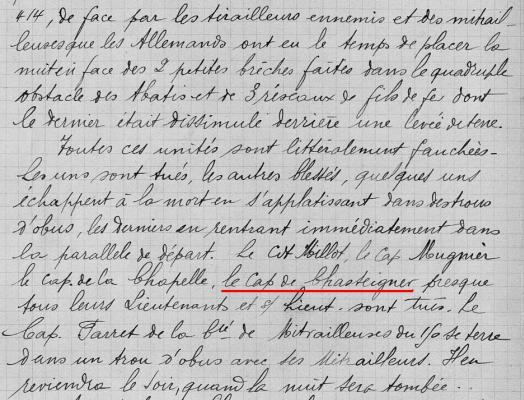 414, de face par les tirailleurs ennemis et des mitrail-
leuses que les Allemands ont eu le temps de placer la
nuit en face des 2 petites brêches faites dans le quadruple
obstacle des Abatis et de 3 réseaux de fils de fer dont
le dernier était dissimulé derrière une levée de terre.
Toutes ces unités sont littéralement fauchées -
Les uns sont tués, les autres blessés, quelques uns
échappent à la mort en s'applatissant dans des trous
d'obus, les derniers en rentrant immédiatement dans
la parallèle de départ. Le Cdt Millot, le Cap Mugnier
le Cap. de la Chapelle, le Cap de Chasteigner presque
tous leurs Lieutenants et s/ Lieut. sont tués. Le
Cap. Tarret de la Cie de Mitrailleuses du se terre
dans un trou d'obus avec ses Mitrailleurs. Il en
reviendra le soir, quand la nuit sera tombée..